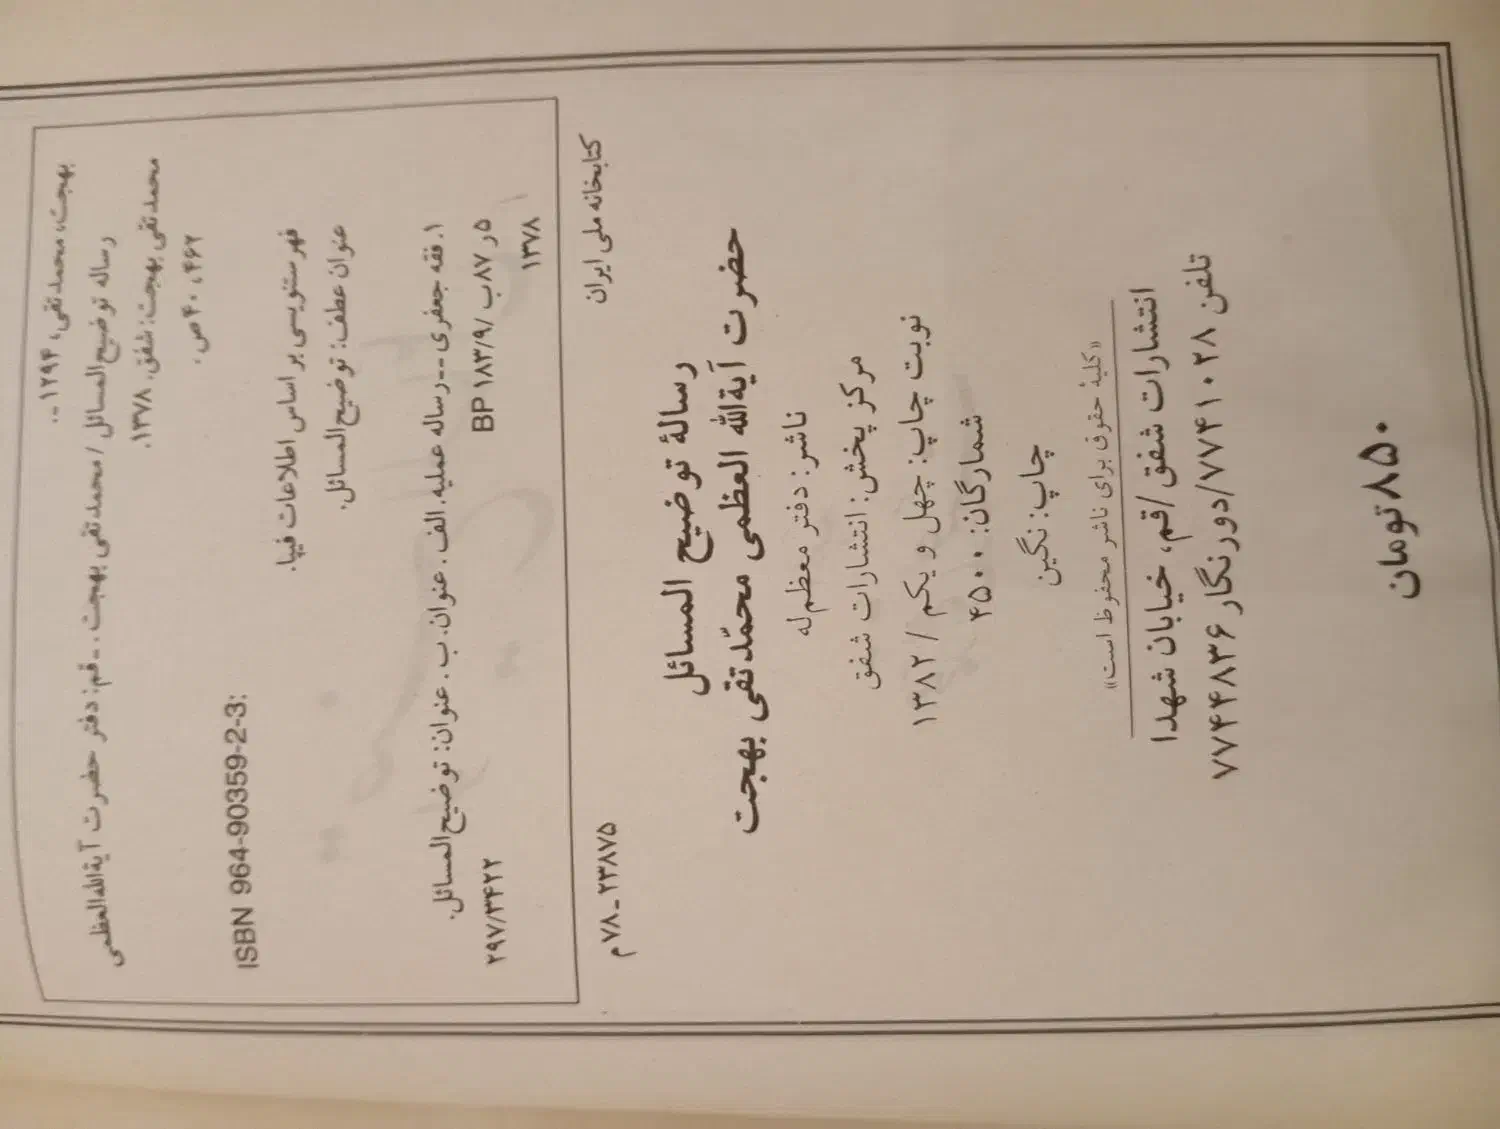 بهجت، محمدتقی، ۱۲۹۴ ـ.
رساله توضیح‌المسائل / محمدتقی بهجت . ـ قم: دفتر حضرت آیةالله‌العظمی
محمدتقی بهجت: شفق، ۱۳۷۸.
۴۶۲، ۴۰ص .
ISBN 964-90359-2-3:
فهرستنویسی بر اساس اطلاعات فیپا.
عنوان عطف: توضیح‌المسائل.
۱. فقه جعفری -- رساله عملیه. الف . عنوان. ب . عنوان: توضیح‌المسائل.
۵ر ۸۷ب /۱۸۳/۹ BP ۲۹۷/۳۴۲۲
۱۳۷۸
کتابخانه ملی ایران ۲۳۸۷۵ـ۷۸م
رسالهٔ توضیح المسائل
حضرت آیةالله العظمی محمّدتقی بهجت
ناشر: دفتر معظم‌له
مرکز پخش: انتشارات شفق
نوبت چاپ: چهل و یکم / ۱۳۸۲
شمارگان: ۴۵۰۰
چاپ: نگین
«کلیهٔ حقوق برای ناشر محفوظ است»
انتشارات شفق /قم، خیابان شهدا
تلفن ۷۷۴۱۰۲۸/دورنگار ۷۷۴۴۸۳۶
۸۵۰تومان